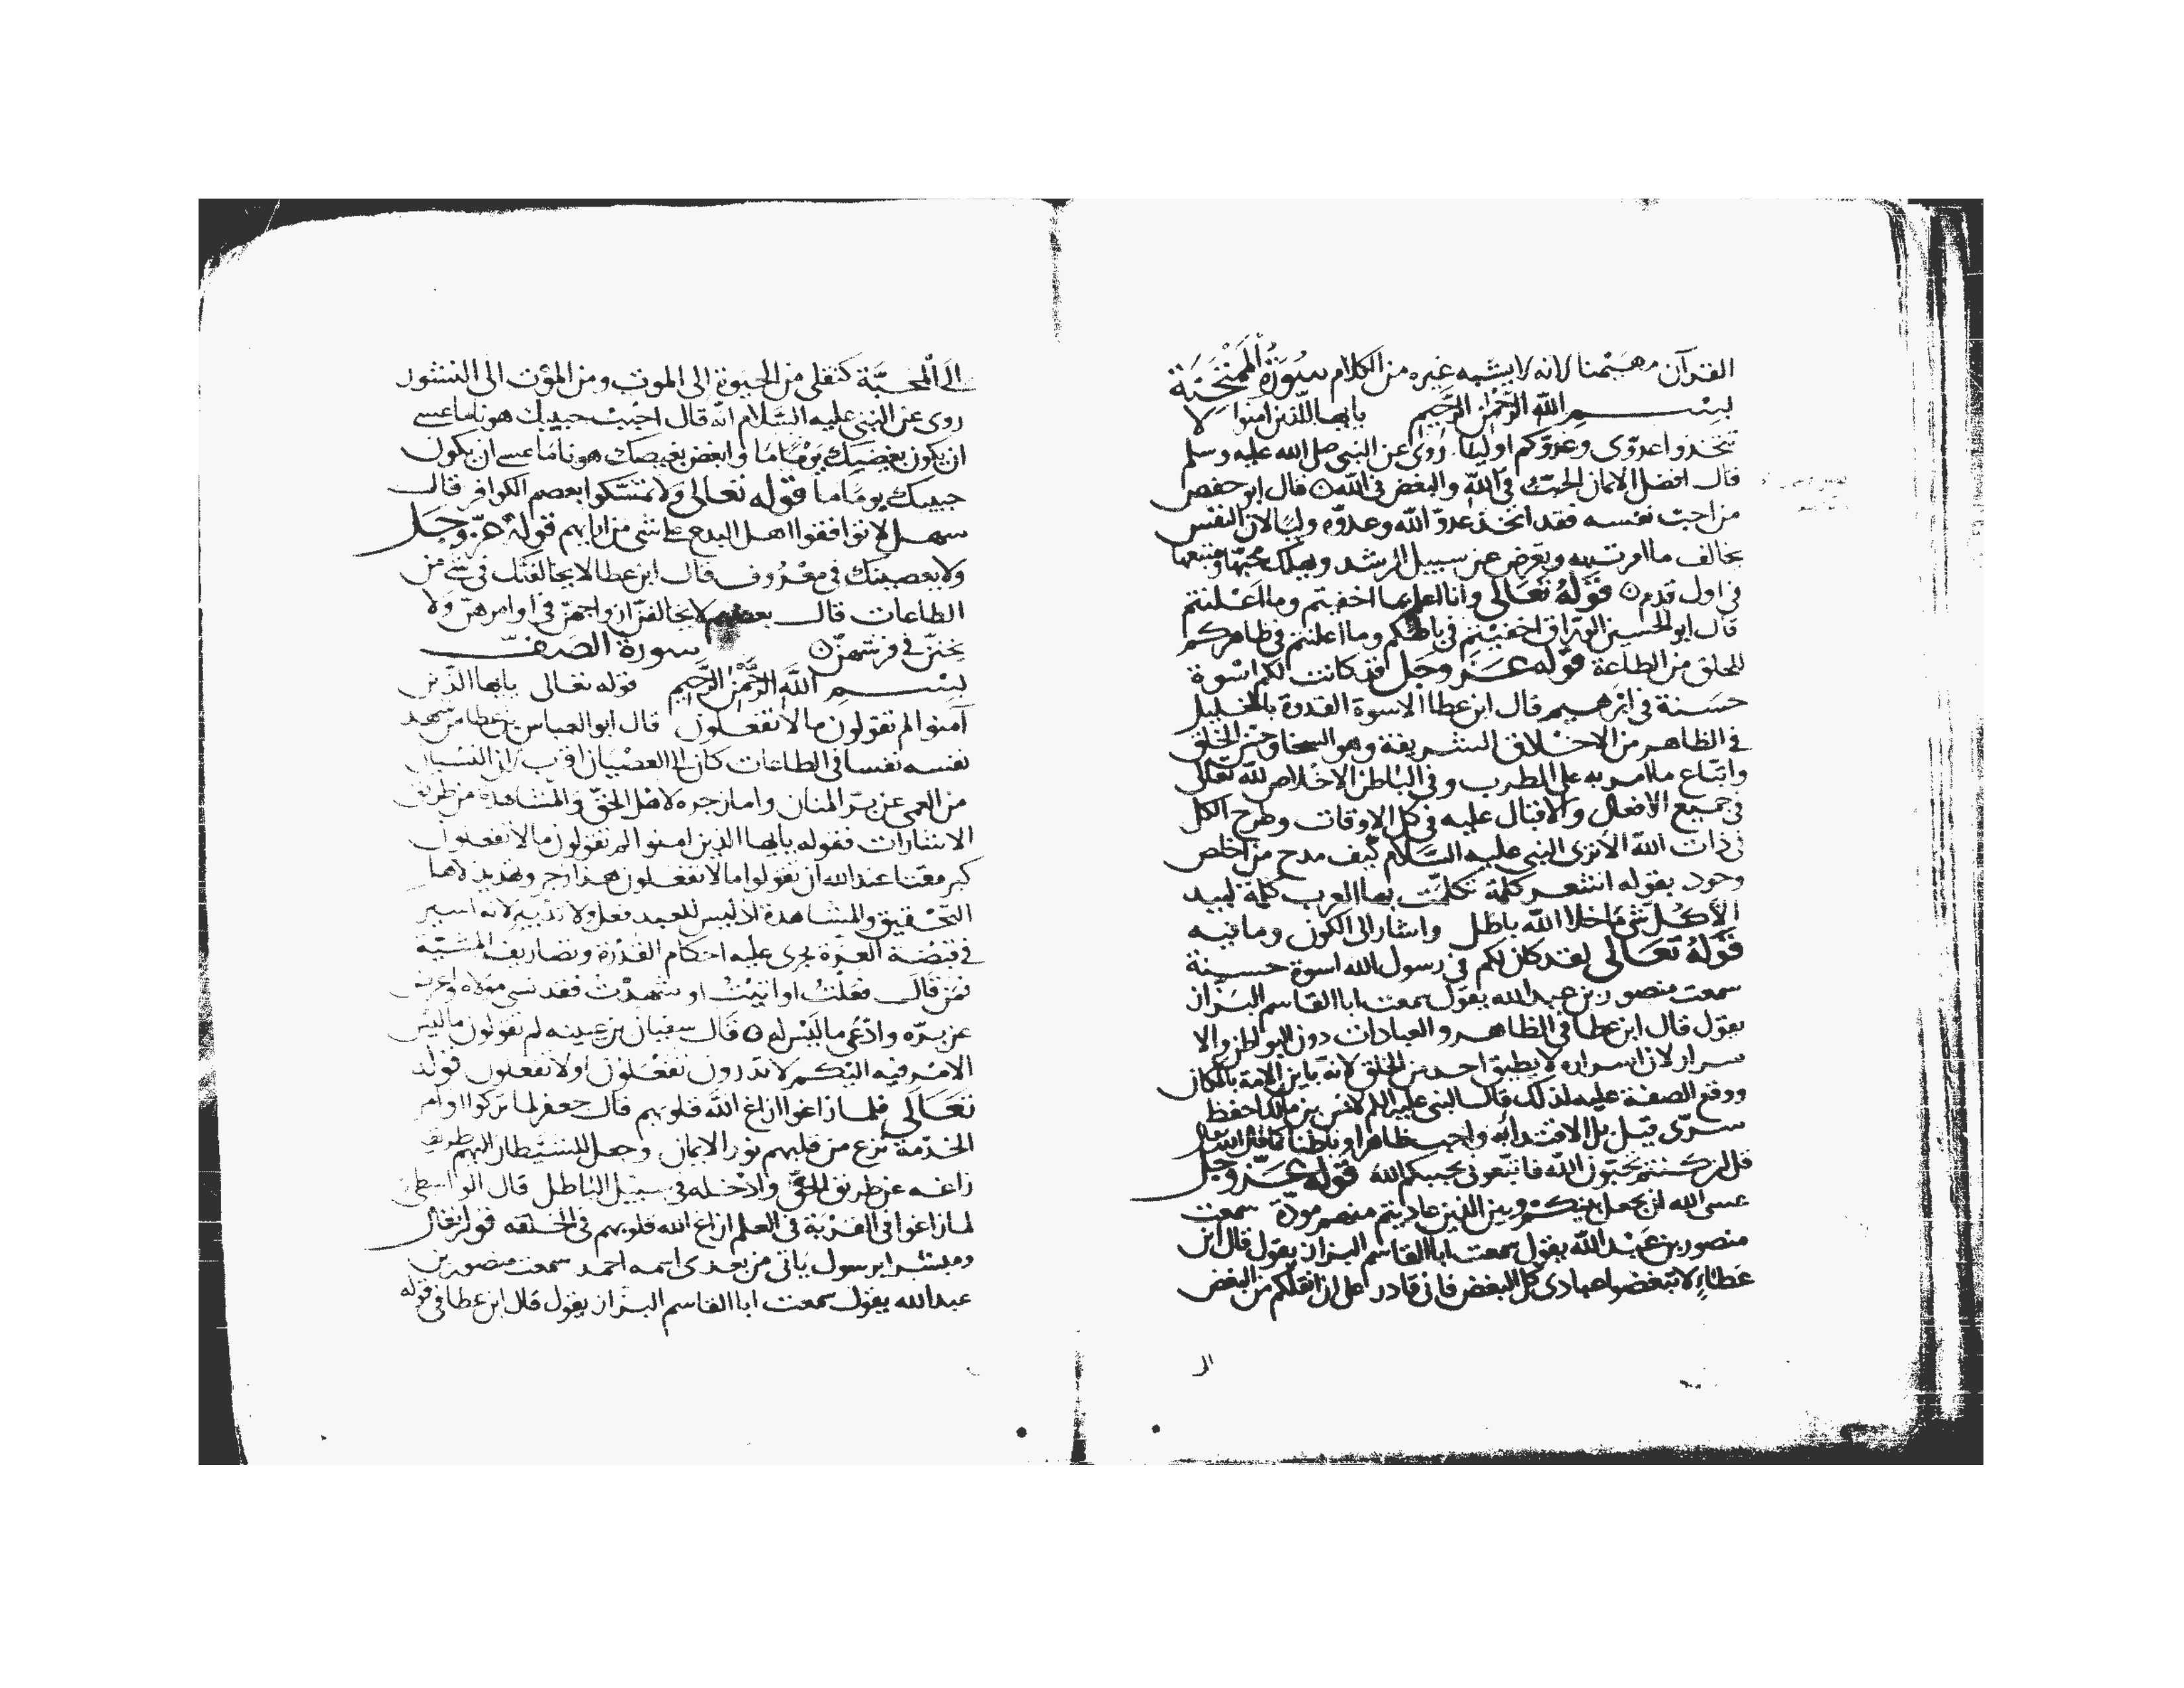 القرآن مهيمنا لانه لا يشبه غيره من الكلام سورة الممتحنة
بسم الله الرحمن الرحيم يايها الذين امنوا لا
تتخذوا عدوى وعدوكم اوليا روى عن النبي صلى الله عليه وسلم
قال افضل الايمان الحب في الله والبغض في الله قال ابو حفص
من احب نفسه فقد اتخذ عدو الله وعدوه وليا لان النفس
تخالف ما امرت به وتعرض عن سبيل الرشد ويهلك محبها ومتبعها
في اول قدم قوله تعالى وانا اعلم بما اخفيتم وما اعلنتم
قال ابو الحسين الوراق اخفيتم في باطنكم وما اعلنتم في ظاهركم
للخلق من الطاعة قوله عز وجل قد كانت لكم اسوة
حسنة في ابرهيم قال ابن عطا الاسوة القدوة بالخليل
في الظاهر من الاخلاق الشريفة وهو السخا وحسن الخلق
واتباع ما امر به على الطرب وفي الباطن الاخلاص لله تعالى
في جميع الافعال والاقبال عليه في كل الاوقات وطرح الكل
في ذات الله الا ترى النبي عليه السلام كيف مدح من اخلص
وجود بقوله اشعر كلمة تكلمت بها العرب كلمة لبيد
الا كل شي ما خلا الله باطل واشار الى الكون وما فيه
قوله تعالى لقد كان لكم في رسول الله اسوة حسنة
سمعت منصور بن عبد الله يقول سمعت ابا القاسم البزاز
يقول قال ابن عطا في الظاهر والعبادات دون البواطن والا
سرار لان اسراره لا يطيق احد من الخلق لانه باين الامة بالمكان
ووقع الصفة عليه لذلك قال النبي عليه السلم لانس بن مالك احفظ
سرى قيل بل الاقتدا به واجب ظاهرا وباطنا كما قال الله تعالى
قل ان كنتم تحبون الله فاتبعوني يحببكم الله قوله عز وجل
عسى الله ان يجعل بينكم وبين الذين عاديتم منهم مودة سمعت
منصور بن عبد الله يقول سمعت ابا القاسم البزاز يقول قال ابن
عطاء لا تبغضوا عبادى كل البغض فاني قادر على ان انقلكم من البغض
الى المحبة كنقلى من الحيوة الى الموت ومن الموت الى النشور
روى عن النبي عليه السلام انه قال احبب حبيبك هونا ما عسى
ان يكون بغيضك يوما ما وابغض بغيضك هونا ما عسى ان يكون
حبيبك يوما ما قوله تعالى ولا تمسكوا بعصم الكوافر قال
سهل لا توافقوا اهل البدع على شي من ارايهم قوله عز وجل
ولا يعصينك في معروف قال ابن عطا لا يخالفنك في شي من
الطاعات قال بعضهم لا يخالفن ازواجهن في اوامرهن ولا
يخنن في فرشهن سورة الصف
بسم الله الرحمن الرحيم قوله تعالى يايها الذين
آمنوا لم تقولون مالا تفعلون قال ابو العباس بن عطا من شهد
نفسه نفسا في الطاعات كان الى العصيان اقرب لان النسيان
من العمى عن بر المنان وامازجره لاهل الحق في المشاهدة من طريق
الاشارات فقوله يايها الذين امنوا لم تقولون مالا تفعلون
كبر مقتا عند الله ان تقولوا مالا تفعلون هذا زجر وتهديد لاهل
التحقيق والمشاهدة اذ ليس للعبد فعل ولا تدبير لانه اسير
في قبضة العزة يجرى عليه احكام القدرة وتصاريف المشية
فمن قال فعلت او اتيت او شهدت فقد نسي مولاه واعرض
عن بره وادعى ما ليس له قال سفيان بن عيينه لم تقولون ما ليس
الامر فيه اليكم لا تدرون تفعلون او لا تفعلون قوله
تعالى فلما زاغوا ازاغ الله قلوبهم قال جعفر لما تركوا اوامر
الخدمة نزع من قلبهم نور الايمان وجعل للشيطان اليهم طريقا
زاغه عن طريق الحق وادخله في سبيل الباطل قال الواسطي
لما زاغوا في القربة في العلم ازاغ الله قلوبهم في الخلقه قوله تعالى
ومبشرا برسول ياتي من بعدى اسمه احمد سمعت منصور بن
عبد الله يقول سمعت ابا القاسم البزاز يقول قال ابن عطا في قوله